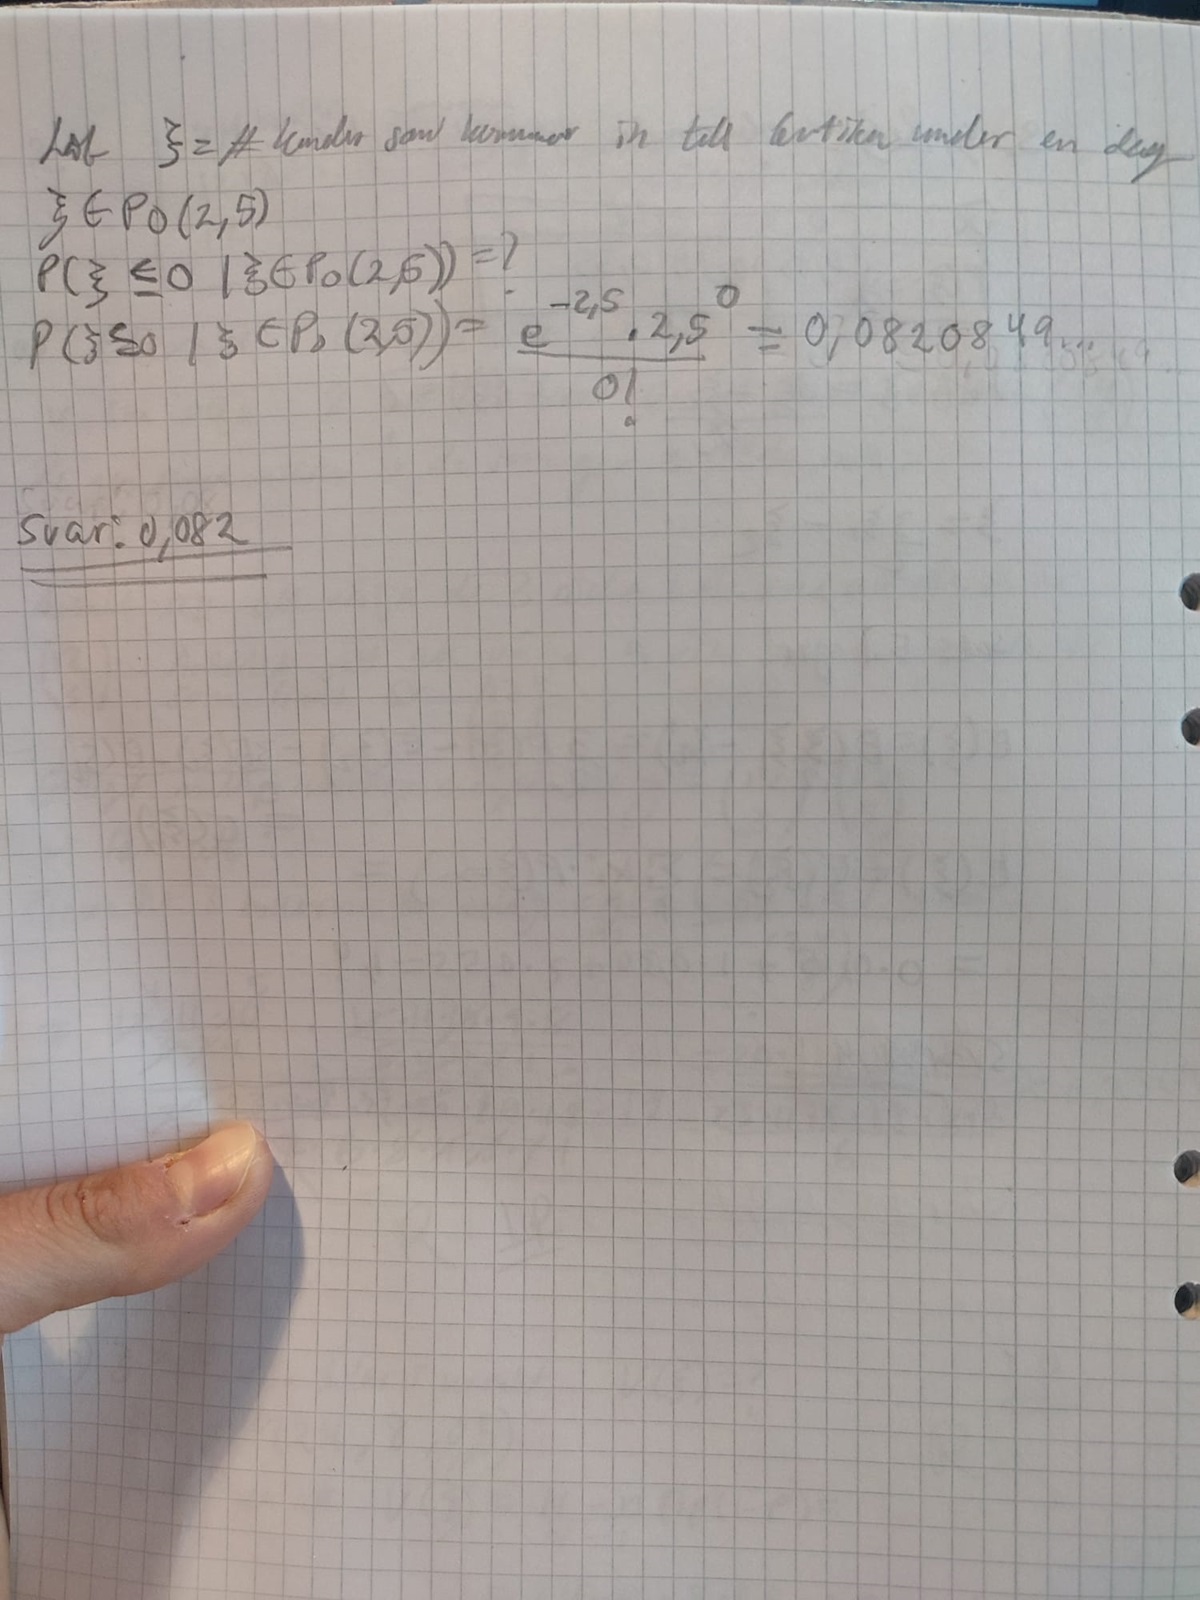 Låt ξ = # kunder som kommer in till butiken under en dag
ξ ∈ Po(2,5)
P(ξ ≤ 0 | ξ ∈ Po(2,5)) = ?
P(ξ ≤ 0 | ξ ∈ Po(2,5)) = e^-2,5 · 2,5^0 / 0! = 0,0820849...
Svar: 0,082